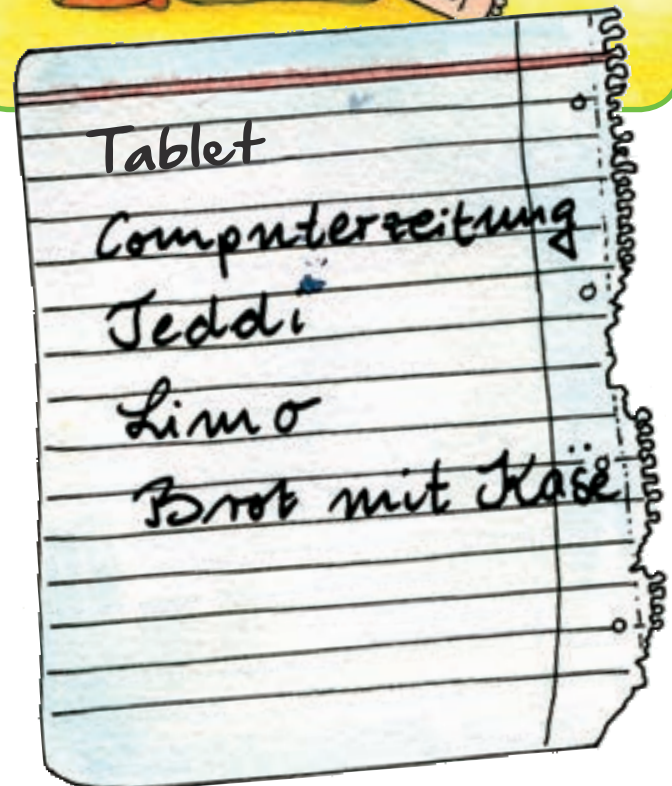 Tablet
Computerzeitung
Teddi
Limo
Brot mit Käse